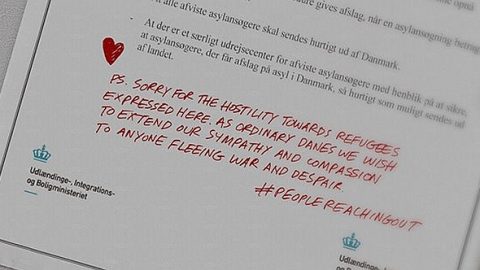 give afslag, når en asylansøgning
alle afviste asylansøgere skal sendes hurtigt ud af Danmark.
- At der er et særligt udrejsecenter for afviste asylansøgere med henblik på at sikre,
at asylansøgere, der får afslag på asyl i Danmark, så hurtigt som muligt sendes ud
af landet.
PS. SORRY FOR THE HOSTILITY TOWARDS REFUGEES
EXPRESSED HERE. AS ORDINARY DANES WE WISH
TO EXTEND OUR SYMPATHY AND COMPASSION
TO ANYONE FLEEING WAR AND DESPAIR
#PEOPLEREACHINGOUT
Udlændinge-, Integrations-
og Boligministeriet